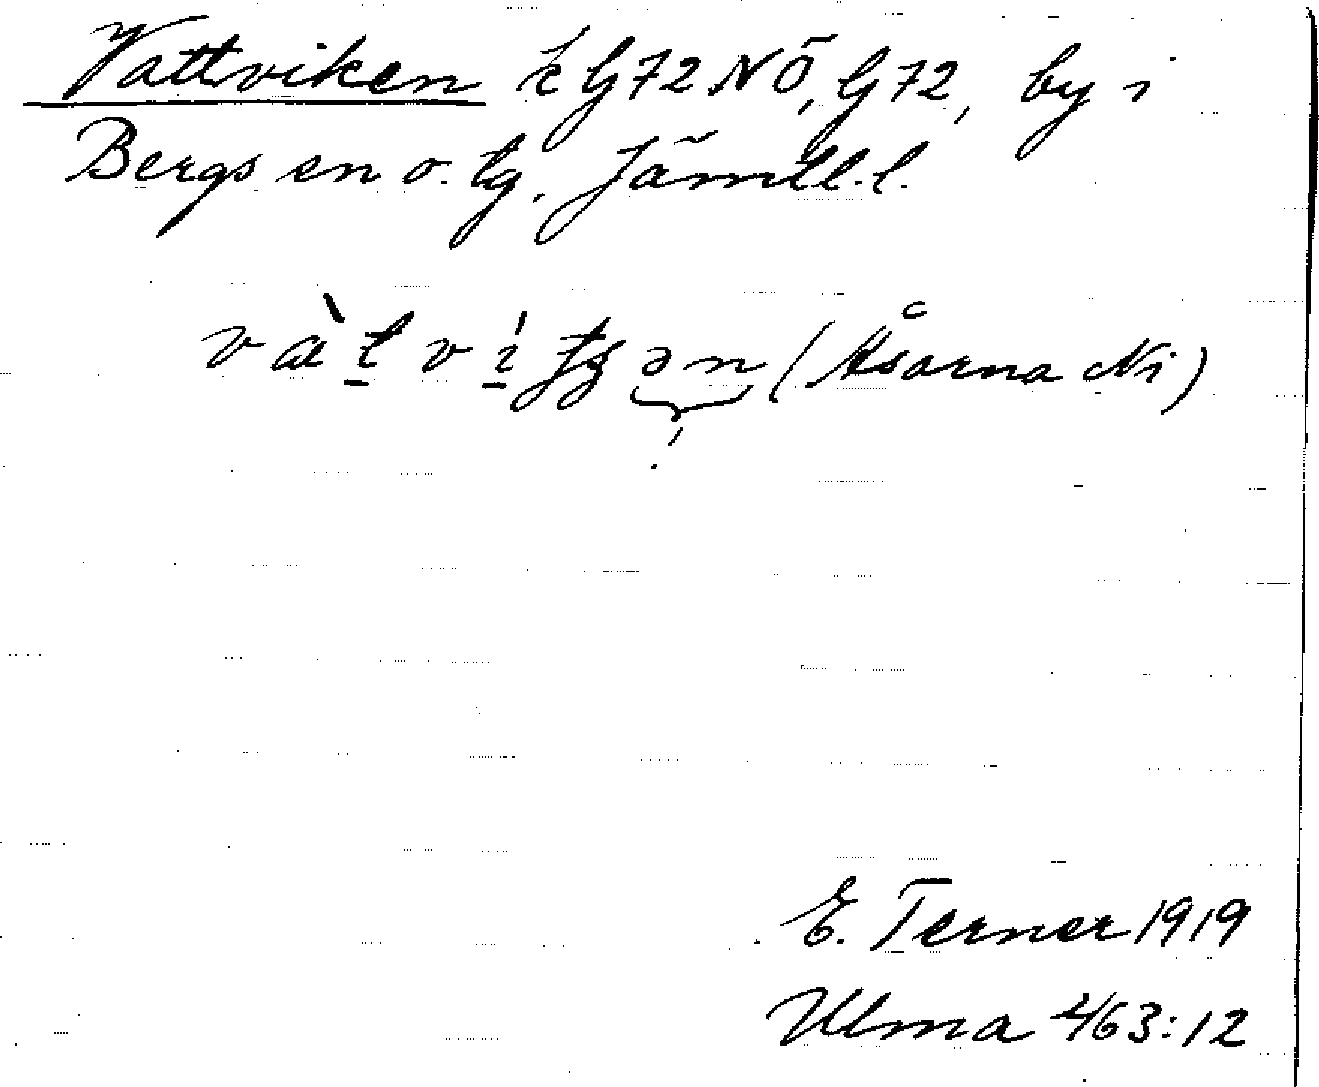 Vattviken k G72NÖ, G72, by i
Bergs sn o. tg. Jämtl. l.
(Åsarna Ni)
E. Terner 1919
Ulma 463:12